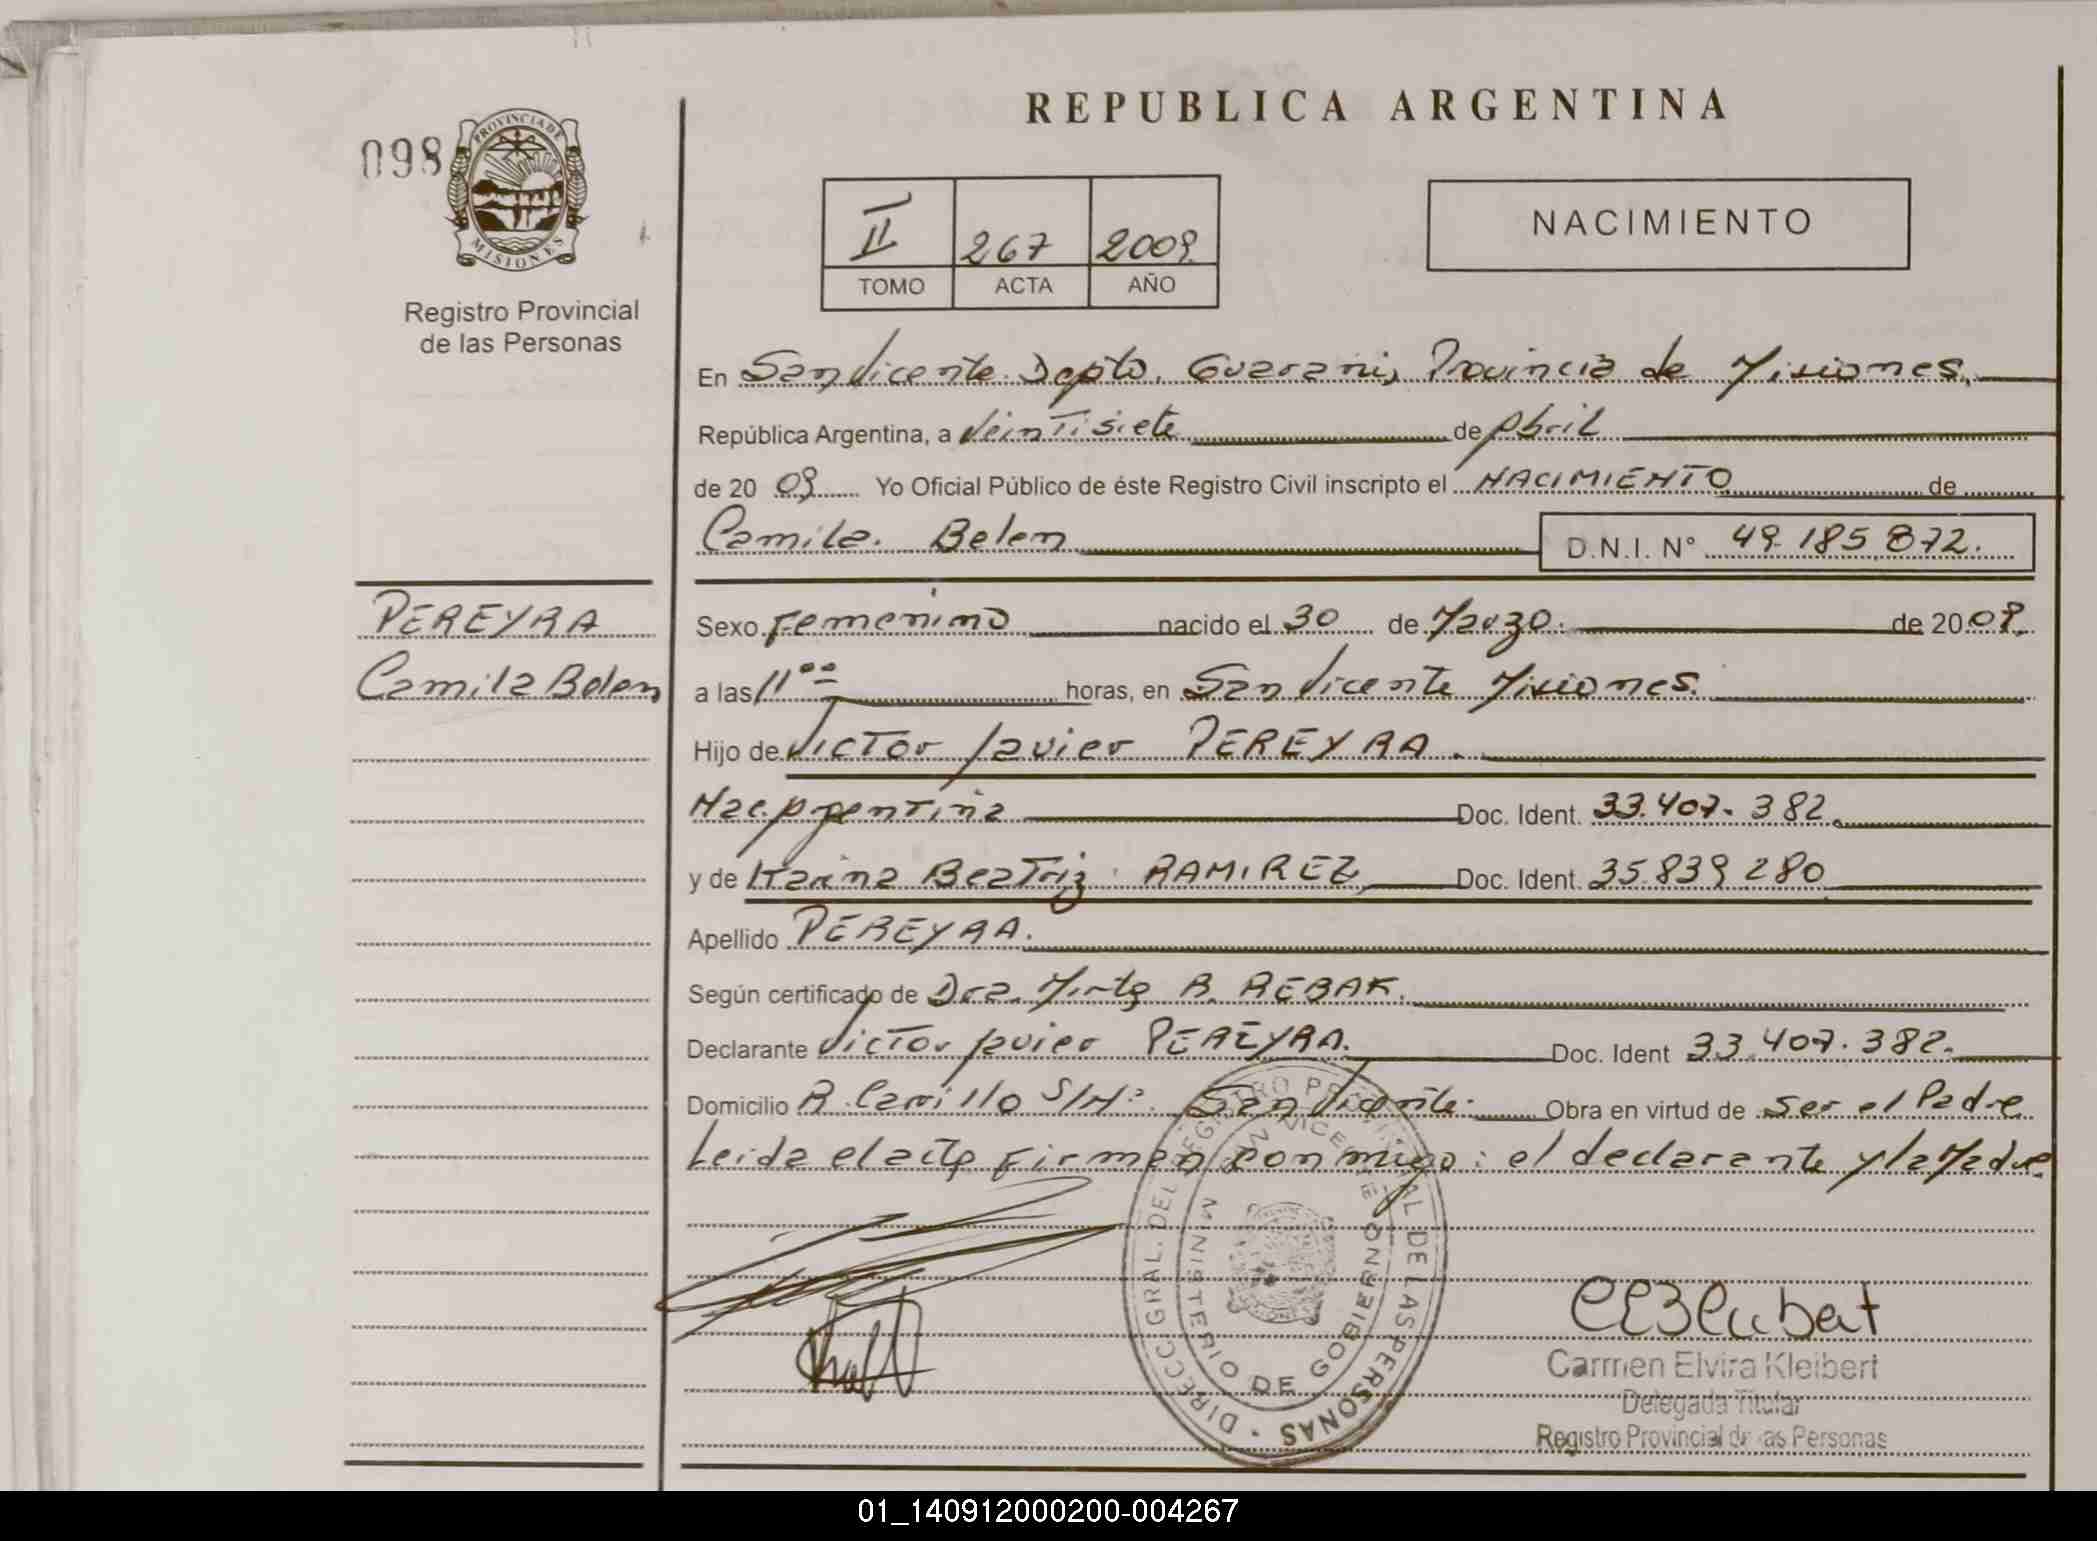 REPUBLICA ARGENTINA
098
PROVINCIA DE
MISIONES
Registro Provincial
de las Personas
II 267 2009
TOMO ACTA AÑO
NACIMIENTO
En San Vicente Depto. Guarani, Provincia de Misiones.
República Argentina, a Veintisiete de Abril
de 20 09 Yo Oficial Público de éste Registro Civil inscripto el NACIMIENTO de
Camila Belen D.N.I. Nº 49.185.872.
PEREYRA
Camila Belen
Sexo Femenino nacido el 30 de Marzo de 2009.
a las 11 00 horas, en San Vicente Misiones.
Hijo de Victor Javier PEREYRA.
Nac. Argentina Doc. Ident. 33.407.382.
y de Karina Beatriz RAMIREZ Doc. Ident. 35.839.280
Apellido PEREYRA.
Según certificado de Dra. Mirta R. REBAK.
Declarante Victor Javier PEREYRA. Doc. Ident 33.407.382.
Domicilio R. Carrillo S/Nº. San Vicente. Obra en virtud de ser el Padre
Leida el acta firman conmigo: el declarante y la Madre
DIRECC GRAL. DEL REGISTRO PROVINCIAL DE LAS PERSONAS
SAN VICENTE
MINISTERIO DE GOBIERNO
Carmen Elvira Kleibert
Delegada Titular
Registro Provincial de las Personas
01_140912000200-004267